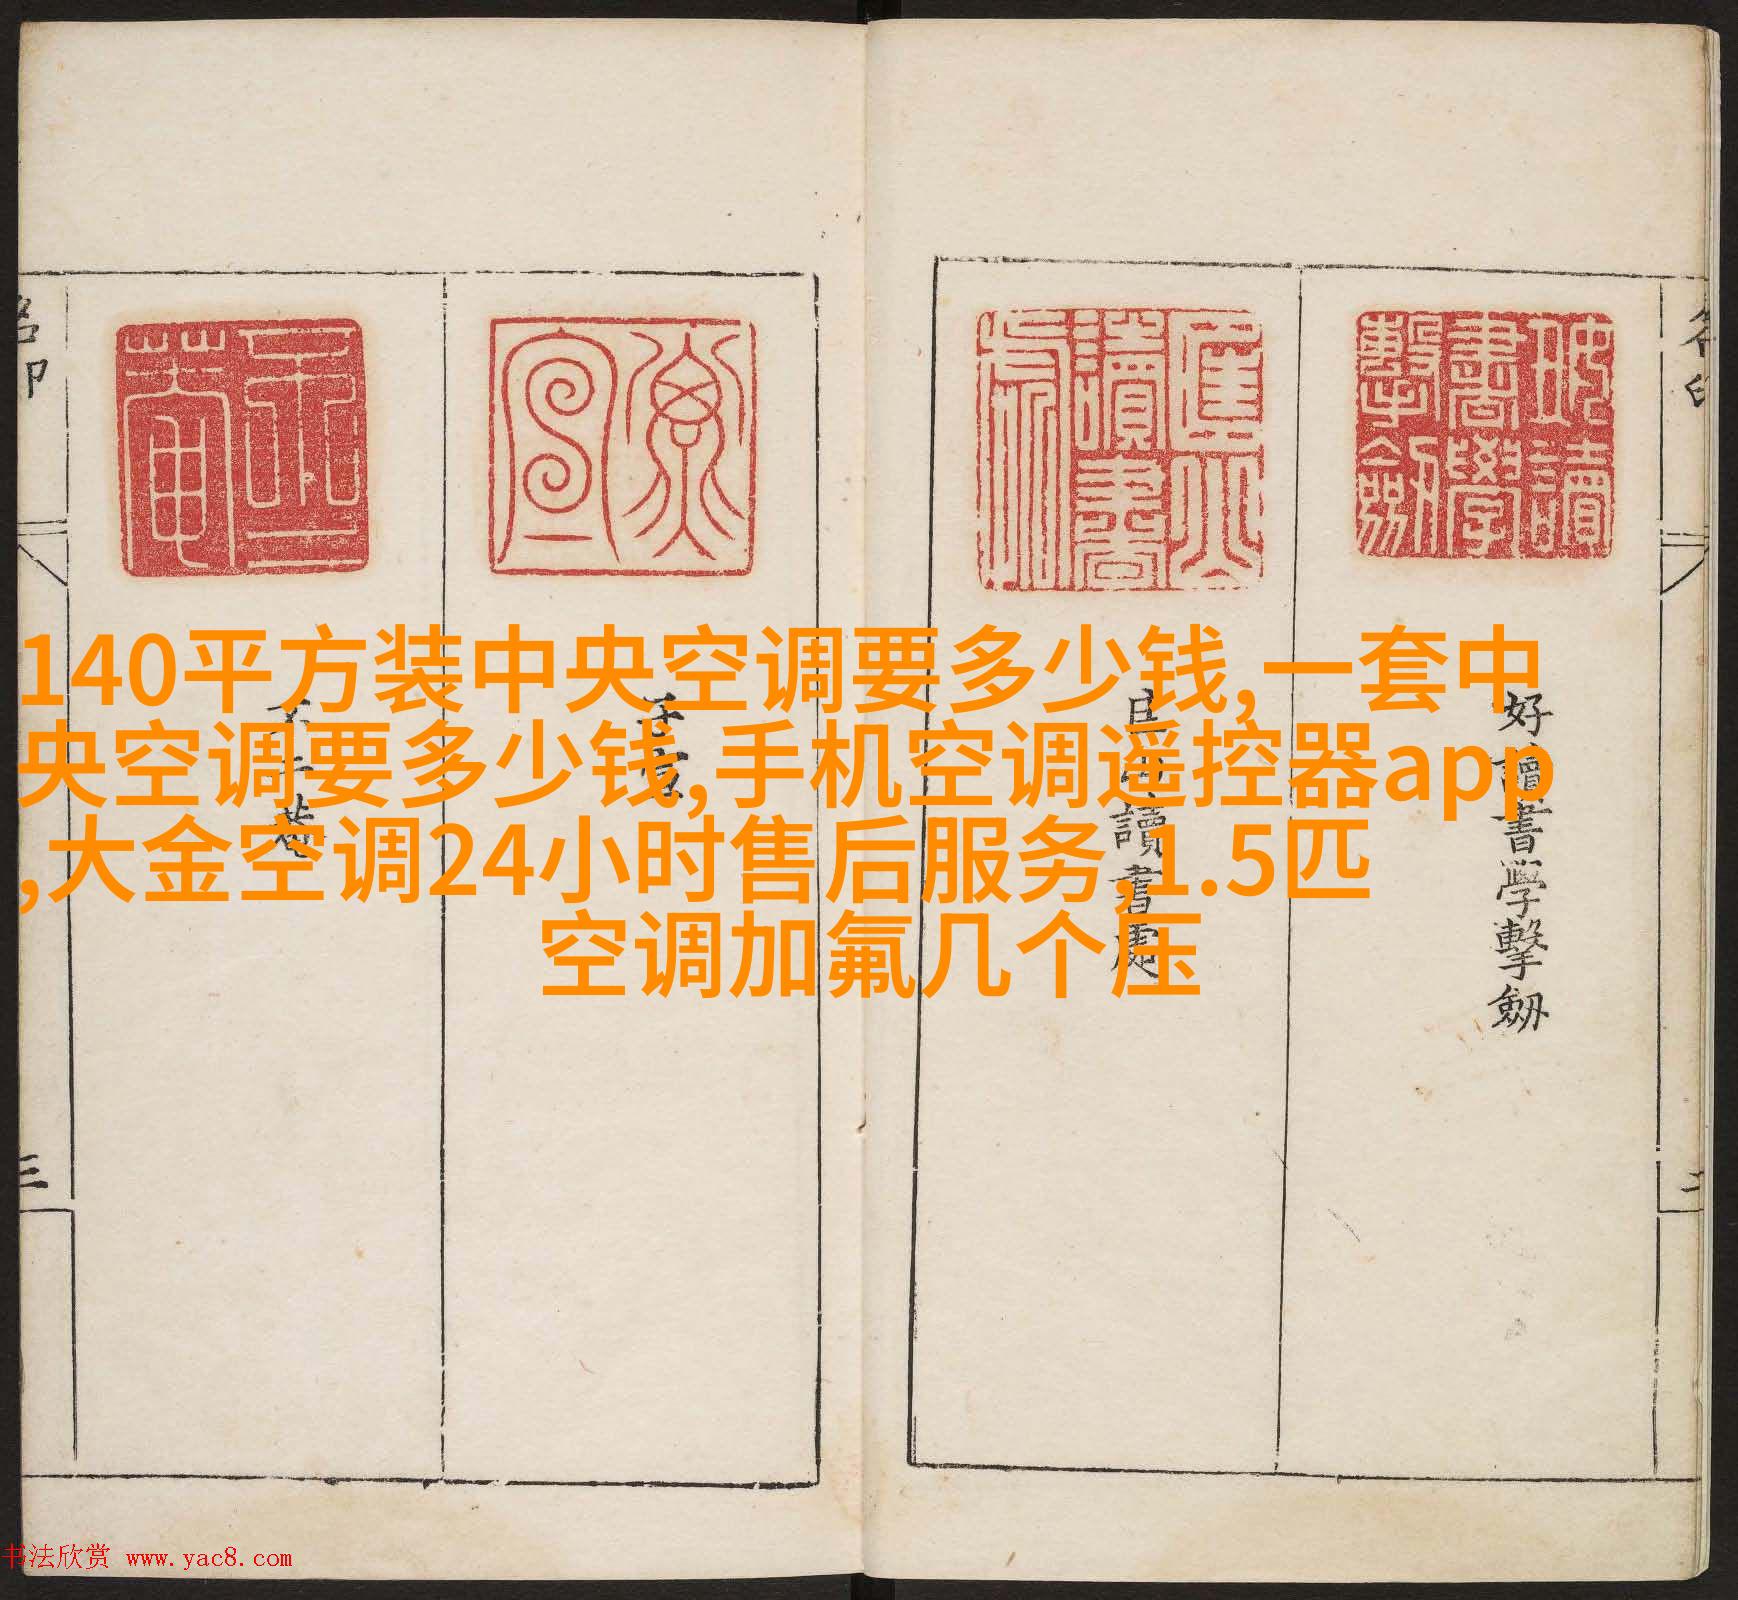 140平方装中央空调要多少钱,一套中
央空调要多少钱,手机空调遥控器app
,大金空调24小时售后服务,1.5匹
空调加氟几个压
好讀書學擊劒
匡山讀書處
好讀書學擊劒
讀書處
三
书法欣赏 www.yac8.com